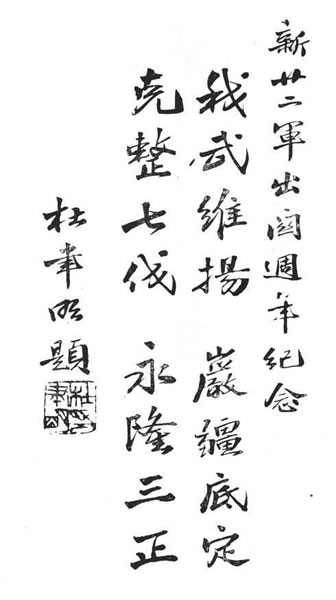 新廿二軍出關週年紀念
我武維揚 巖疆底定
克整七伐 永隆三正
杜聿明題